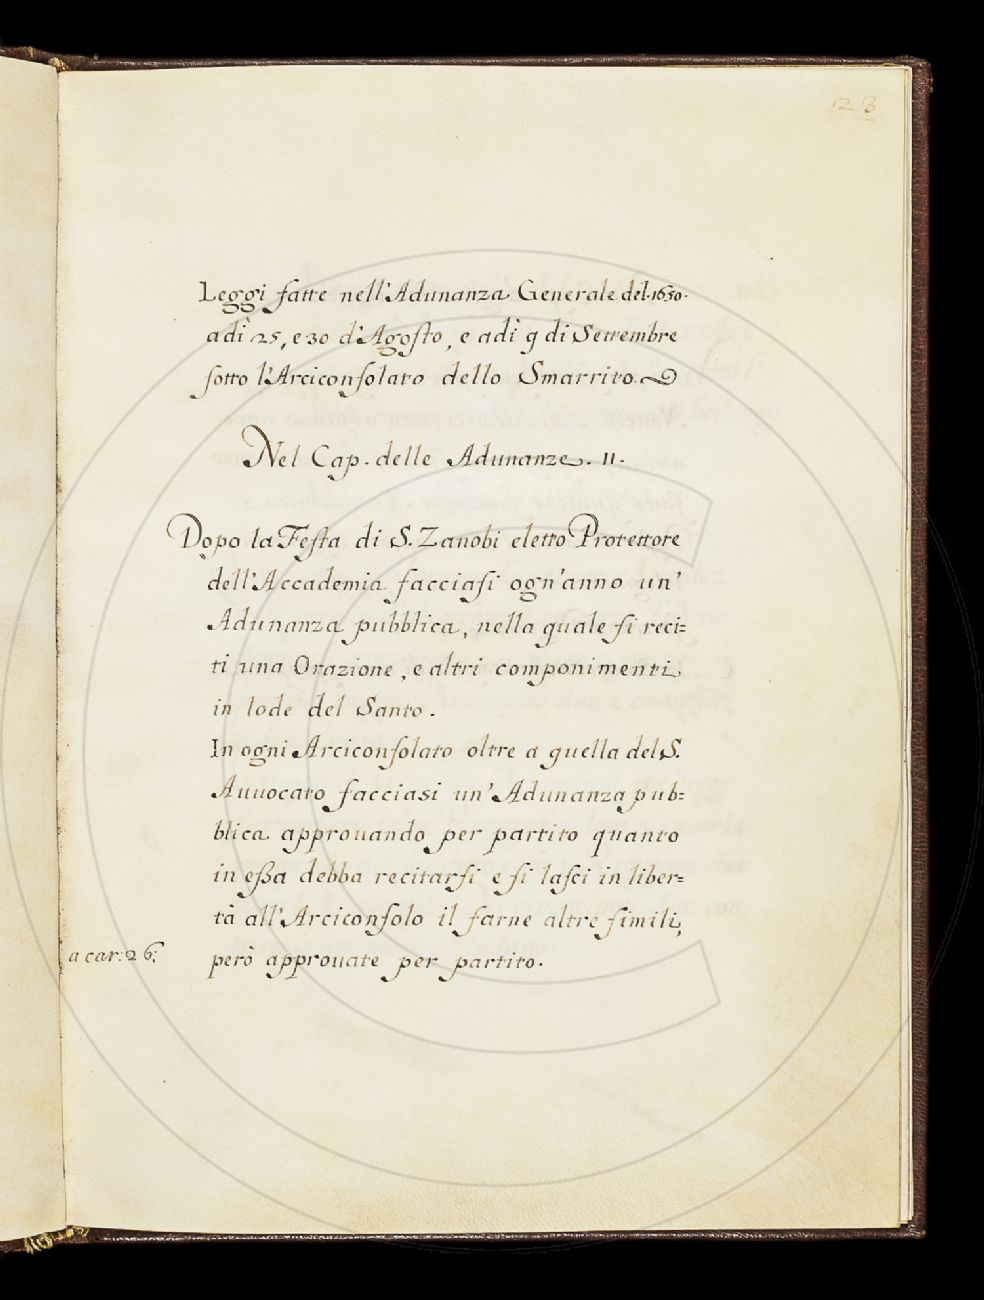 23
Leggi fatte nell'Adunanza Generale del 1650.
adì 25, e 30 d'Agosto, e adì 9 di Settembre
sotto l'Arciconsolato dello Smarrito.
Nel Cap. delle Adunanze. 11.
Dopo la Festa di S. Zanobi eletto Protettore
dell'Accademia facciasi ogn'anno un'
Adunanza pubblica, nella quale si reci=
ti una Orazione, e altri componimenti
in lode del Santo.
In ogni Arciconsolato oltre a quella del S.
Auuocato facciasi un'Adunanza pub=
blica approuando per partito quanto
in essa debba recitarsi e si lasci in liber=
tà all'Arciconsolo il farne altre simili,
a car: 26;
però approuate per partito.